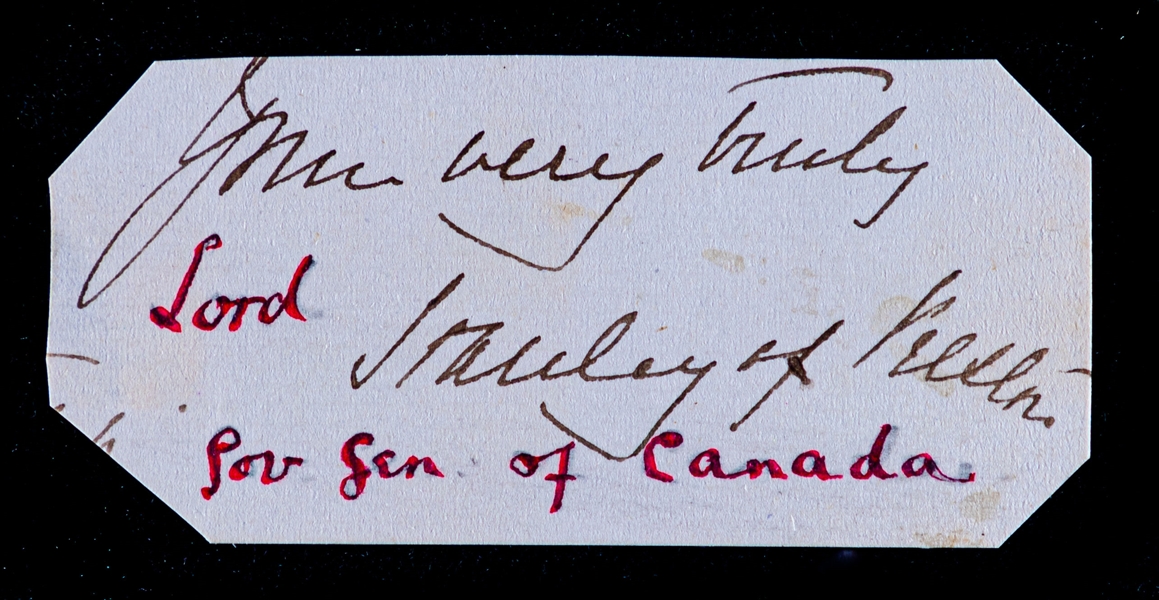 Yours very truly
Lord
Stanley of Preston.
Gov Gen of Canada